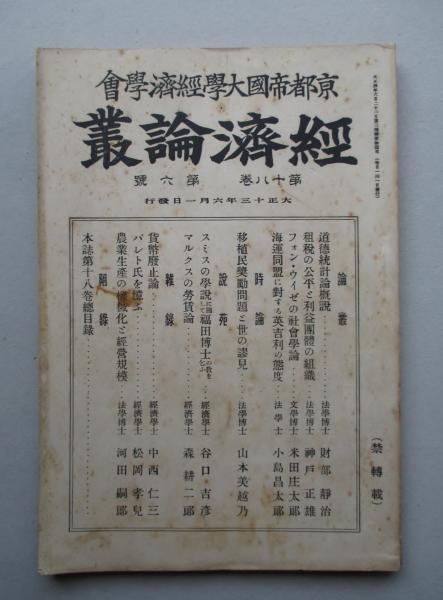 京都帝國大學經濟學會
經濟論叢
第十八卷 第六號
大正十三年六月一日發行
論叢
道德統計論概說 法學博士 財部靜治
租稅の公平と利益團體の組織 法學博士 神戶正雄
フォン・ウイゼの社會學論 文學博士 米田庄太郞
海運同盟に對する英吉利の態度 法學士 小島昌太郞
時論
移植民獎勵問題と世の謬見 法學博士 山本美越乃
說苑
スミスの學說に關し福田博士の敎を乞ふ 經濟學士 谷口吉彥
マルクスの勞賃論 經濟學士 森耕二郞
雜錄
貨幣廢止論 經濟學士 中西仁三
パレト氏を憶ふ 經濟學士 松岡孝兒
農業生產の機械化と經營規模 法學博士 河田嗣郞
附錄
本誌第十八卷總目錄
(禁轉載)